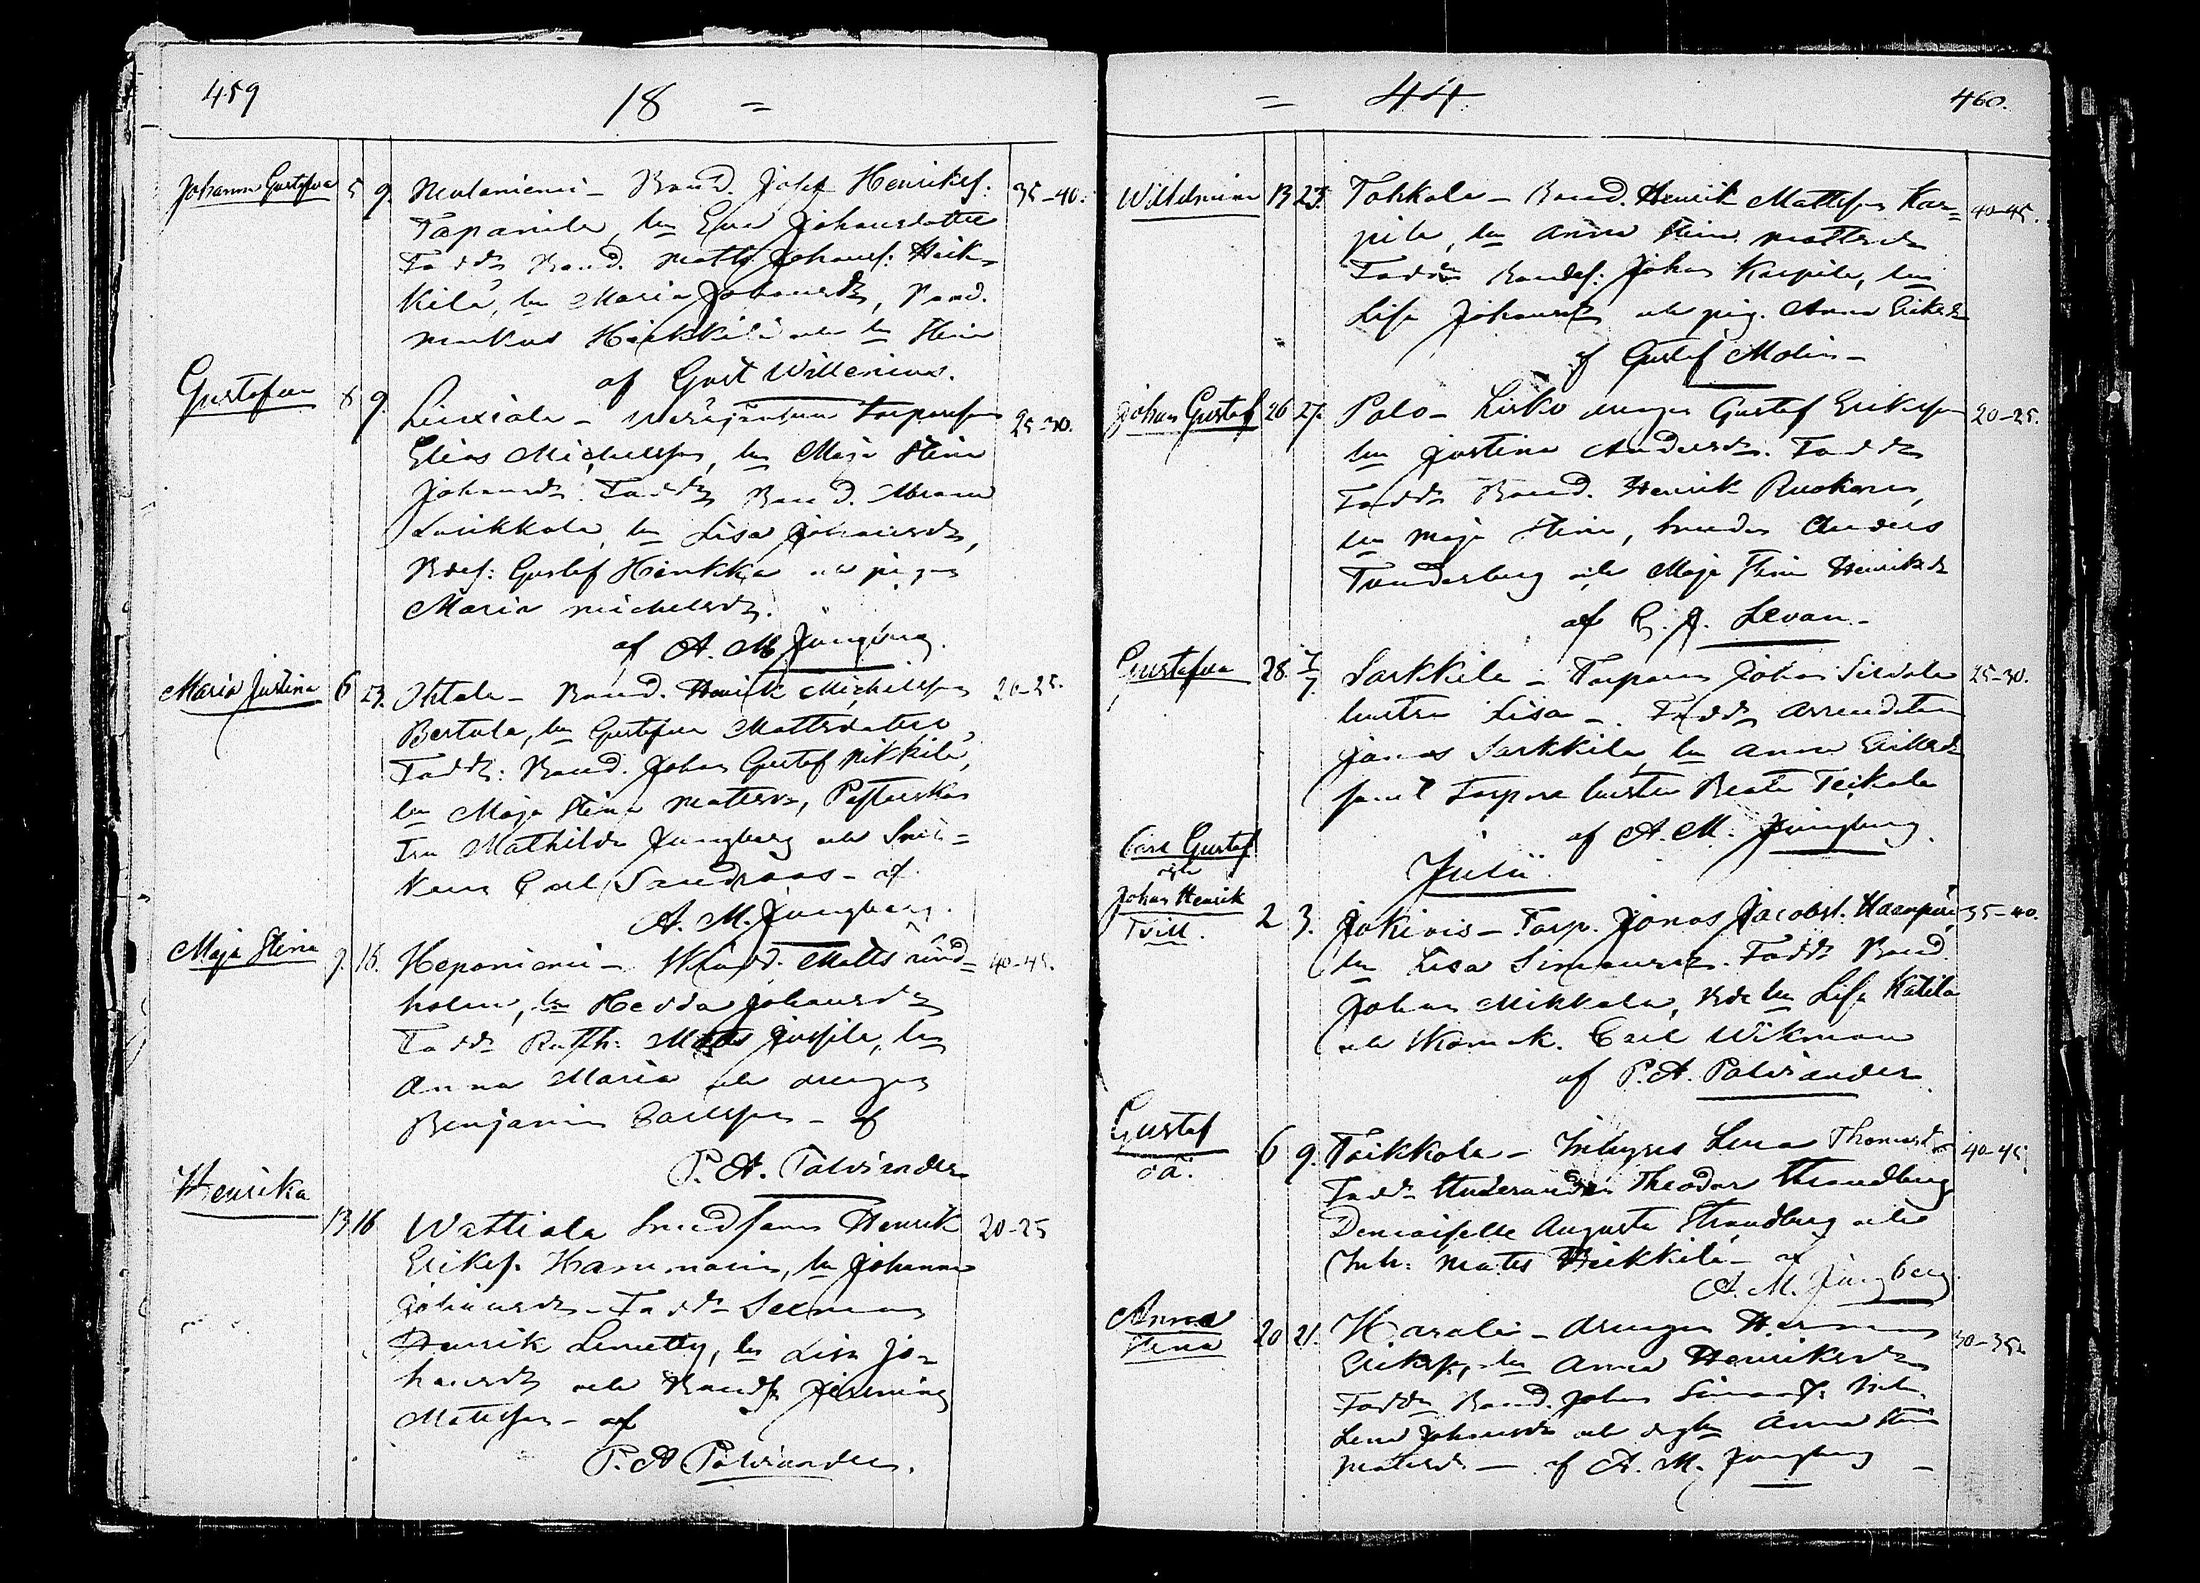 459
18 =
Johanna Gustafva 5 9. Neulaniemi - Bond. Josef Henriksf. 35-40.
Tapanila, hu Eva Johansdotter
Fadd. Bond. Matts Johansf: Heik-
kilä, hu Maria Johansdr, Bond.
Markus Heikkilä och hu Stina
af Gust Willenius.
Gustafva 8 9. Torparesf 25-30.
Elias Michelsson, hu Maja Stina
Johansdr. Faddr Bond. Abram
Laukkala, hu Lisa Johansdr,
Bdesf: Gustaf Heikka och pigan
Maria Michelsdr.
af A. M. Jungberg.
Maria Justina 6 23. Ihtala - Bond. Henrik Michelsson 20-25.
Bertula, hu Gustafva Mattsdotter,
Faddr: Bond. Johan Gustaf Nikkilä,
hu Maja Stina Mattsdr, Pastorskan
Fru Mathilda Jungberg och Snic-
karn Carl Sandraas - af
A. M. Jungberg.
Maja Stina 9. 16. Heponiemi - Matts Lind- 40-45.
holm, hu Hedda Johansdr
Faddr Rusth: Matts Jussila, hu
Anna Maria och drengen
Benjamin Carlsson - af
P. A. Palviander
Henrika 13 16 Wattiala Smedsfaren Henrik 20-25
Eriksf. Hammarin, hu Johanna
Johansdr - Faddr
Henrik Lemetty, hu Lisa Jo-
hansdr och Bondes. Henning
Mattsson - af
P. A Palviander.
= 44 460.
Wilhelmina 13 23. Tohkala - Bond. Henrik Mattsson Kar- 40-45.
pila, hu Anna Stina Mattsdr
Faddr Bondesf: Johan Karpila, hu
Lisa Johansdr och pig. Anna Eriksdr
af Gustaf Molin -
Johan Gustaf 26 27. Palo - Lisko drengen Gustaf Eriksson 20-25.
hu Justina Andersdr. Faddr
Faddr Bond. Henrik Ruokonen,
hu Maja Stina, Smeden Anders
Tunderberg och Maja Stina Henriksdr
af G. J. Levan -
Gustafva 28. 1/7 Sarkkila - Torparen Johan Sirola 25-30.
hustru Lisa -. Faddr Arrendatorn
Jonas Sarkkila, hu Anna Eriksdr
samt Torpare hustru Beata Teikala
af A. M. Jungberg.
Julii.
Carl Gustaf
och
Johan Henrik
Tvill. 2 3. Jokiois - Torp. Jonas Jacobsf. Haarpää, 35-40.
hu Lisa Simonsdr. Faddr Bond.
Johan Mikkola, Bde hu Lisa Katila
och Carl Wikman
af P. A. Palviander
Gustaf
oä: 6 9. Teikkala - Inhyses Lena Thomasdr 40-45
Faddr Studeranden Theodor Strandberg
Demoiselle Augusta Strandberg och
Inh: Matts Heikkilä - af
A. M. Jungberg.
Anna
Stina 20 21. Harali - drengen Herman 30-35.
Eriksf, hu Anna Henriksdr
Faddr Bond. Johan Simonsf: Inh.
Lena Johansdr och Anna Stina
Mattsdr - af A. M. Jungberg -